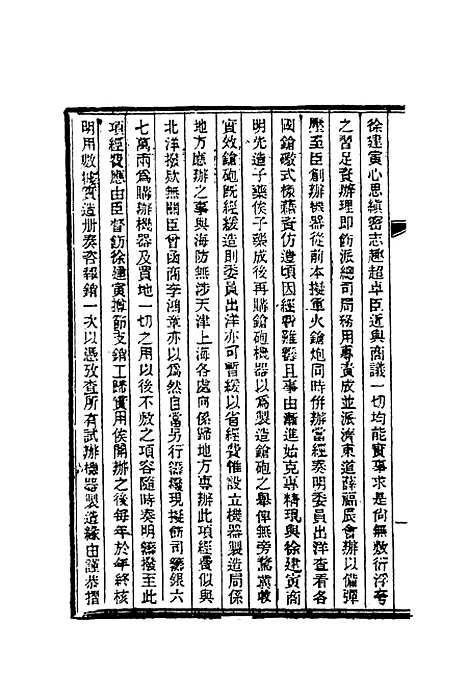 徐建寅心思縝密志趣超卓臣近與商議一切均能實事求是尙無敷衍浮夸
之習足資辦理即飭派總司局務用專責成並派濟東道薛福辰會辦以備彈
壓至臣創辦機器從前本擬軍火鎗炮同時併辦當經奏明委員出洋查看各
國鎗礮式樣藉資仿造頃因經費難籌且事由漸進始克專精現與徐建寅商
明先造子藥俟子藥成後再購鎗砲機器以爲製造鎗砲之舉俾無旁騖冀收
實效鎗砲既經緩造則委員出洋亦可暫緩以省經費惟設立機器製造局係
地方應辦之事與海防無涉天津上海各處向係歸地方專辦此項經費似與
北洋撥欵無關臣曾函商李鴻章亦以爲然自當另行籌撥現擬飭司籌銀六
七萬兩爲購辦機器及買地一切之用以後不敷之項容隨時奏明籌撥至此
項經費應由臣督飭徐建寅撙節支銷工歸實用俟開辦之後每年於年終核
明用數據實造册奏咨報銷一次以憑攷查所有試辦機器製造緣由謹恭摺